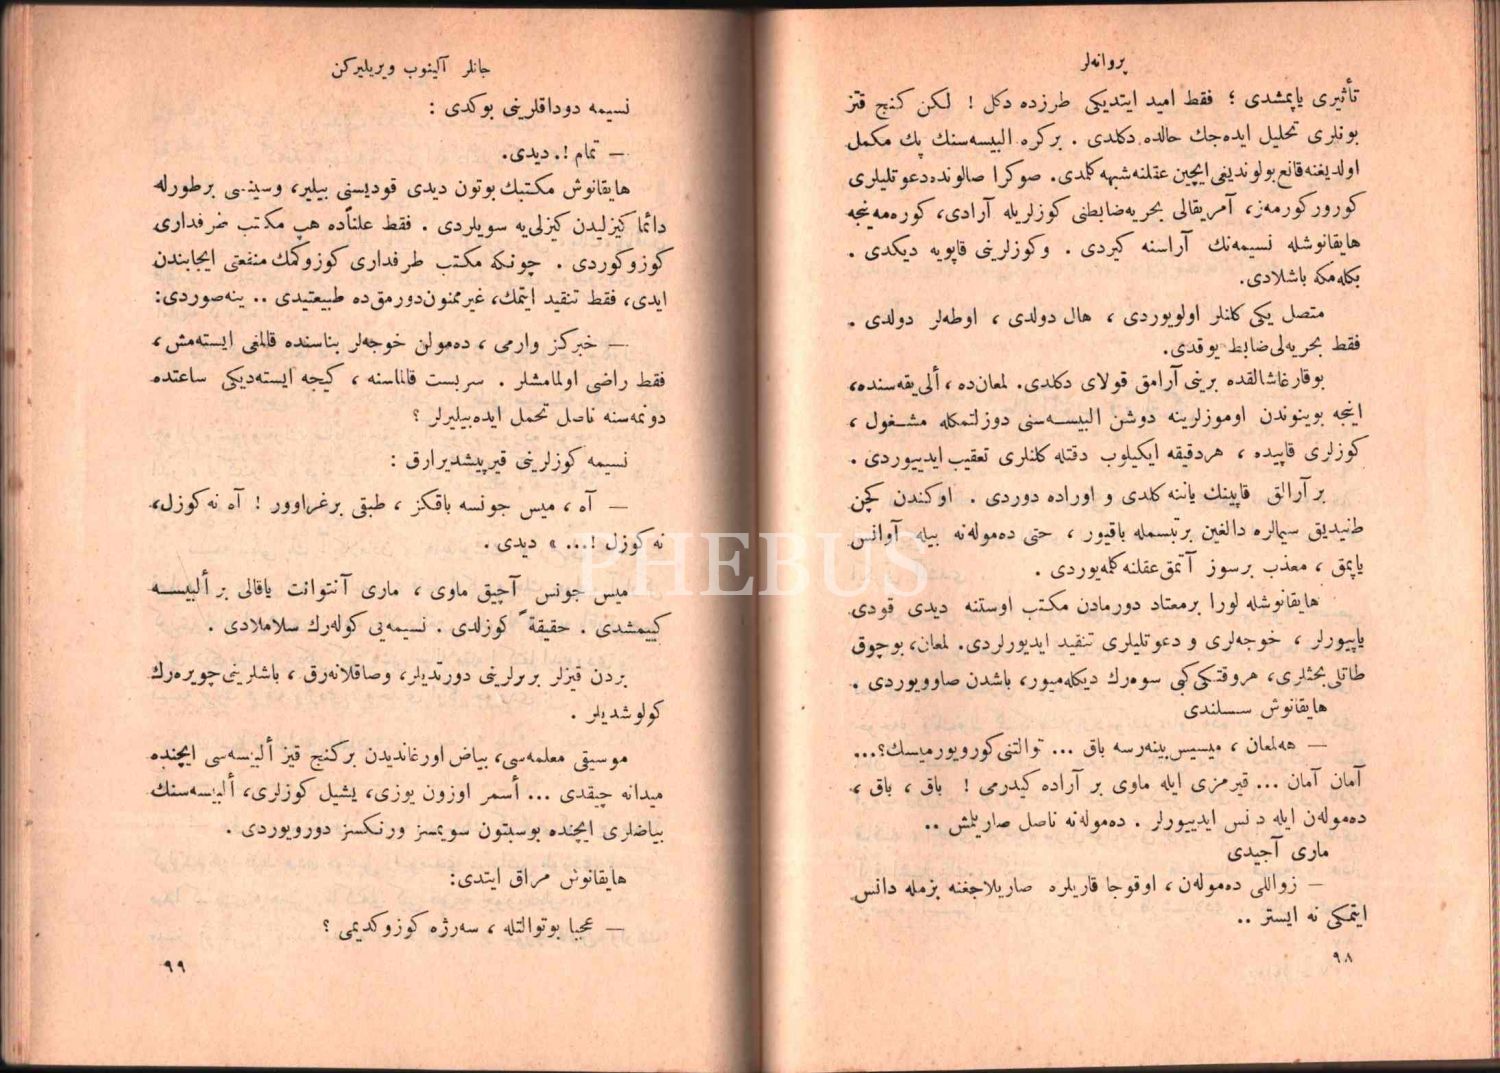 پروانه‌لر
تأثیری یاپمشدی ؛ فقط امید ایتدیکی طرزده دکل ! لکن کنج قیز
بونلری تحلیل ایده‌جك حالده دکلدی . برکره البیسه‌سنك پك مکمل
اولدیغنه قانع بولوندیغی ایچین عقلنه شبهه کلمدی. صوکرا صالونده دعوتلیلری
کورور کورمه‌ز، آمریقالی بحریه ضابطنی کوزلریله آرادی، کوره‌مه‌ینجه
هایقانوشله نسیمه‌نك آراسنه کیردی . وکوزلرینی قاپویه دیکدی .
بکله‌مکه باشلادی.
متصل یکی کلنلر اولویوردی ، هال دولدی ، اوطه‌لر دولدی .
فقط بحریه‌لی ضابط یوقدی.
بوقارغاشالقده برینی آرامق قولای دکلدی. لمعان‌ده ، ألی یقه‌سنده،
اینجه بوینوندن اوموزلرینه دوشن البیســه‌سنی دوزلتمکله مشــغول ،
کوزلری قاپیده ، هردقیقه ایکیلوب دقتله کلنلری تعقیب ایدییوردی .
بر آرالق قاپینك یاننه کلدی و اوراده دوردی . اوکندن کچن
طانیدیق سیمالره دالغین برتبسمله باقیور ، حتی ده‌موله‌نه بیله آوانس
یاپمق ، معذب برسوز آتمق عقلنه کلمه‌یوردی .
هایقانوشله لورا برمعتاد دورمادن مکتب اوستنه دیدی قودی
یاپیورلر ، خوجه‌لری و دعوتلیلری تنقید ایدیورلردی. لمعان، بوچوق
طاتلی بحثلری، هروقتکی کبی سوه‌رك دیکله‌میور، باشدن صاوویوردی .
هایقانوش سسلندی
— هه لمعان ، میسیس بینه‌رسه باق ... توالتنی کورویورمیسك؟...
آمان آمان ... قیرمزی ایله ماوی بر آراده کیدرمی ! باق ، باق ،
ده‌موله‌ن ایله دنس ایدییورلر . ده‌موله‌نه ناصل صاریلمش ..
ماری آجیدی
— زواللی ده‌موله‌ن ، اوقوجا قاریلره صاریلاجغنه بزمله دانس
ایتمکی نه ایستر ..
٩٨
جانلر آلینوب ویریلیرکن
نسیمه دوداقلرینی بوکدی :
— تمام !. دیدی.
هایقانوش مکتبك بوتون دیدی قودیسنی بیلیر، وسینسی برطورله
دائما کیزلیدن کیزلی‌یه سویلردی . فقط علناًده هپ مکتب طرفداری
کوزوکوردی . چونکه مکتب طرفداری کوزوکمك منفعتی ایجابندن
ایدی، فقط تنقید ایتمك، غیرممنون دورمق‌ده طبیعتیدی .. ینه صوردی:
— خبرکز وارمی ، ده‌مولن خوجه‌لر بناسنده قالمغی ایسته‌مش ،
فقط راضی اولمامشلر . سربست قالماسنه ، کیجه ایسته‌دیکی ساعتده
دونمه‌سنه ناصل تحمل ایده‌بیلیرلر ؟
نسیمه کوزلرینی قیرپیشدیرارق :
— آه ، میس جونسه باقکز ، طبقی برغراوور ! آه نه کوزل،
نه کوزل !... » دیدی .
میس جونس آچیق ماوی ، ماری آنتوانت یاقالی بر ألبیســه
کییمشدی . حقیقةً کوزلدی . نسیمه‌یی کوله‌رك سلاملادی .
بردن قیزلر بربرلرینی دورتدیلر، وصاقلانه‌رق ، باشلرینی چویره‌رك
کولوشدیلر .
موسیقی معلمه‌سی، بیاض اورغاندیدن برکنج قیز ألبیسه‌سی ایچنده
میدانه چیقدی ... أسمر اوزون یوزی، یشیل کوزلری، ألبیسه‌سنك
بیاضلری ایچنده بوسبتون سویمسز ورنکسز دورویوردی .
هایقانوش مراق ایتدی:
— عجبا بوتوالتله ، سه‌رژه کوزوکدیمی ؟
٩٩
PHEBUS